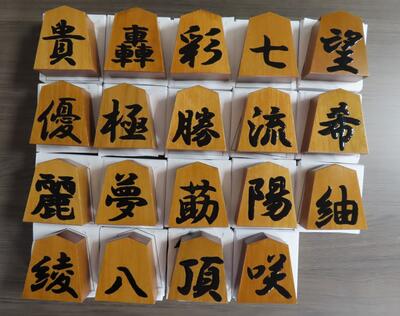 貴轟彩七望
優極勝流希
麗夢莇陽紬
綾八頂咲